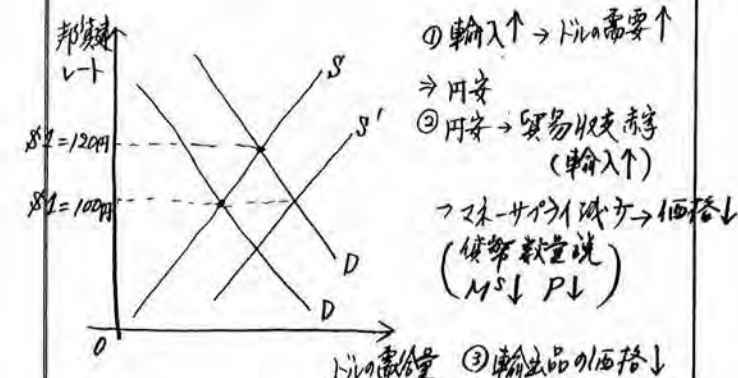 邦貨建
レート
$1=120円
$1=100円
S
S'
D
D
0
ドルの需給量
① 輸入↑ → ドルの需要↑
⇒ 円安
② 円安 → 貿易収支 赤字
(輸入↑)
→ マネーサプライ減少 → 価格↓
(貨幣数量説
Mˢ↓ P↓)
③ 輸出品の価格↓